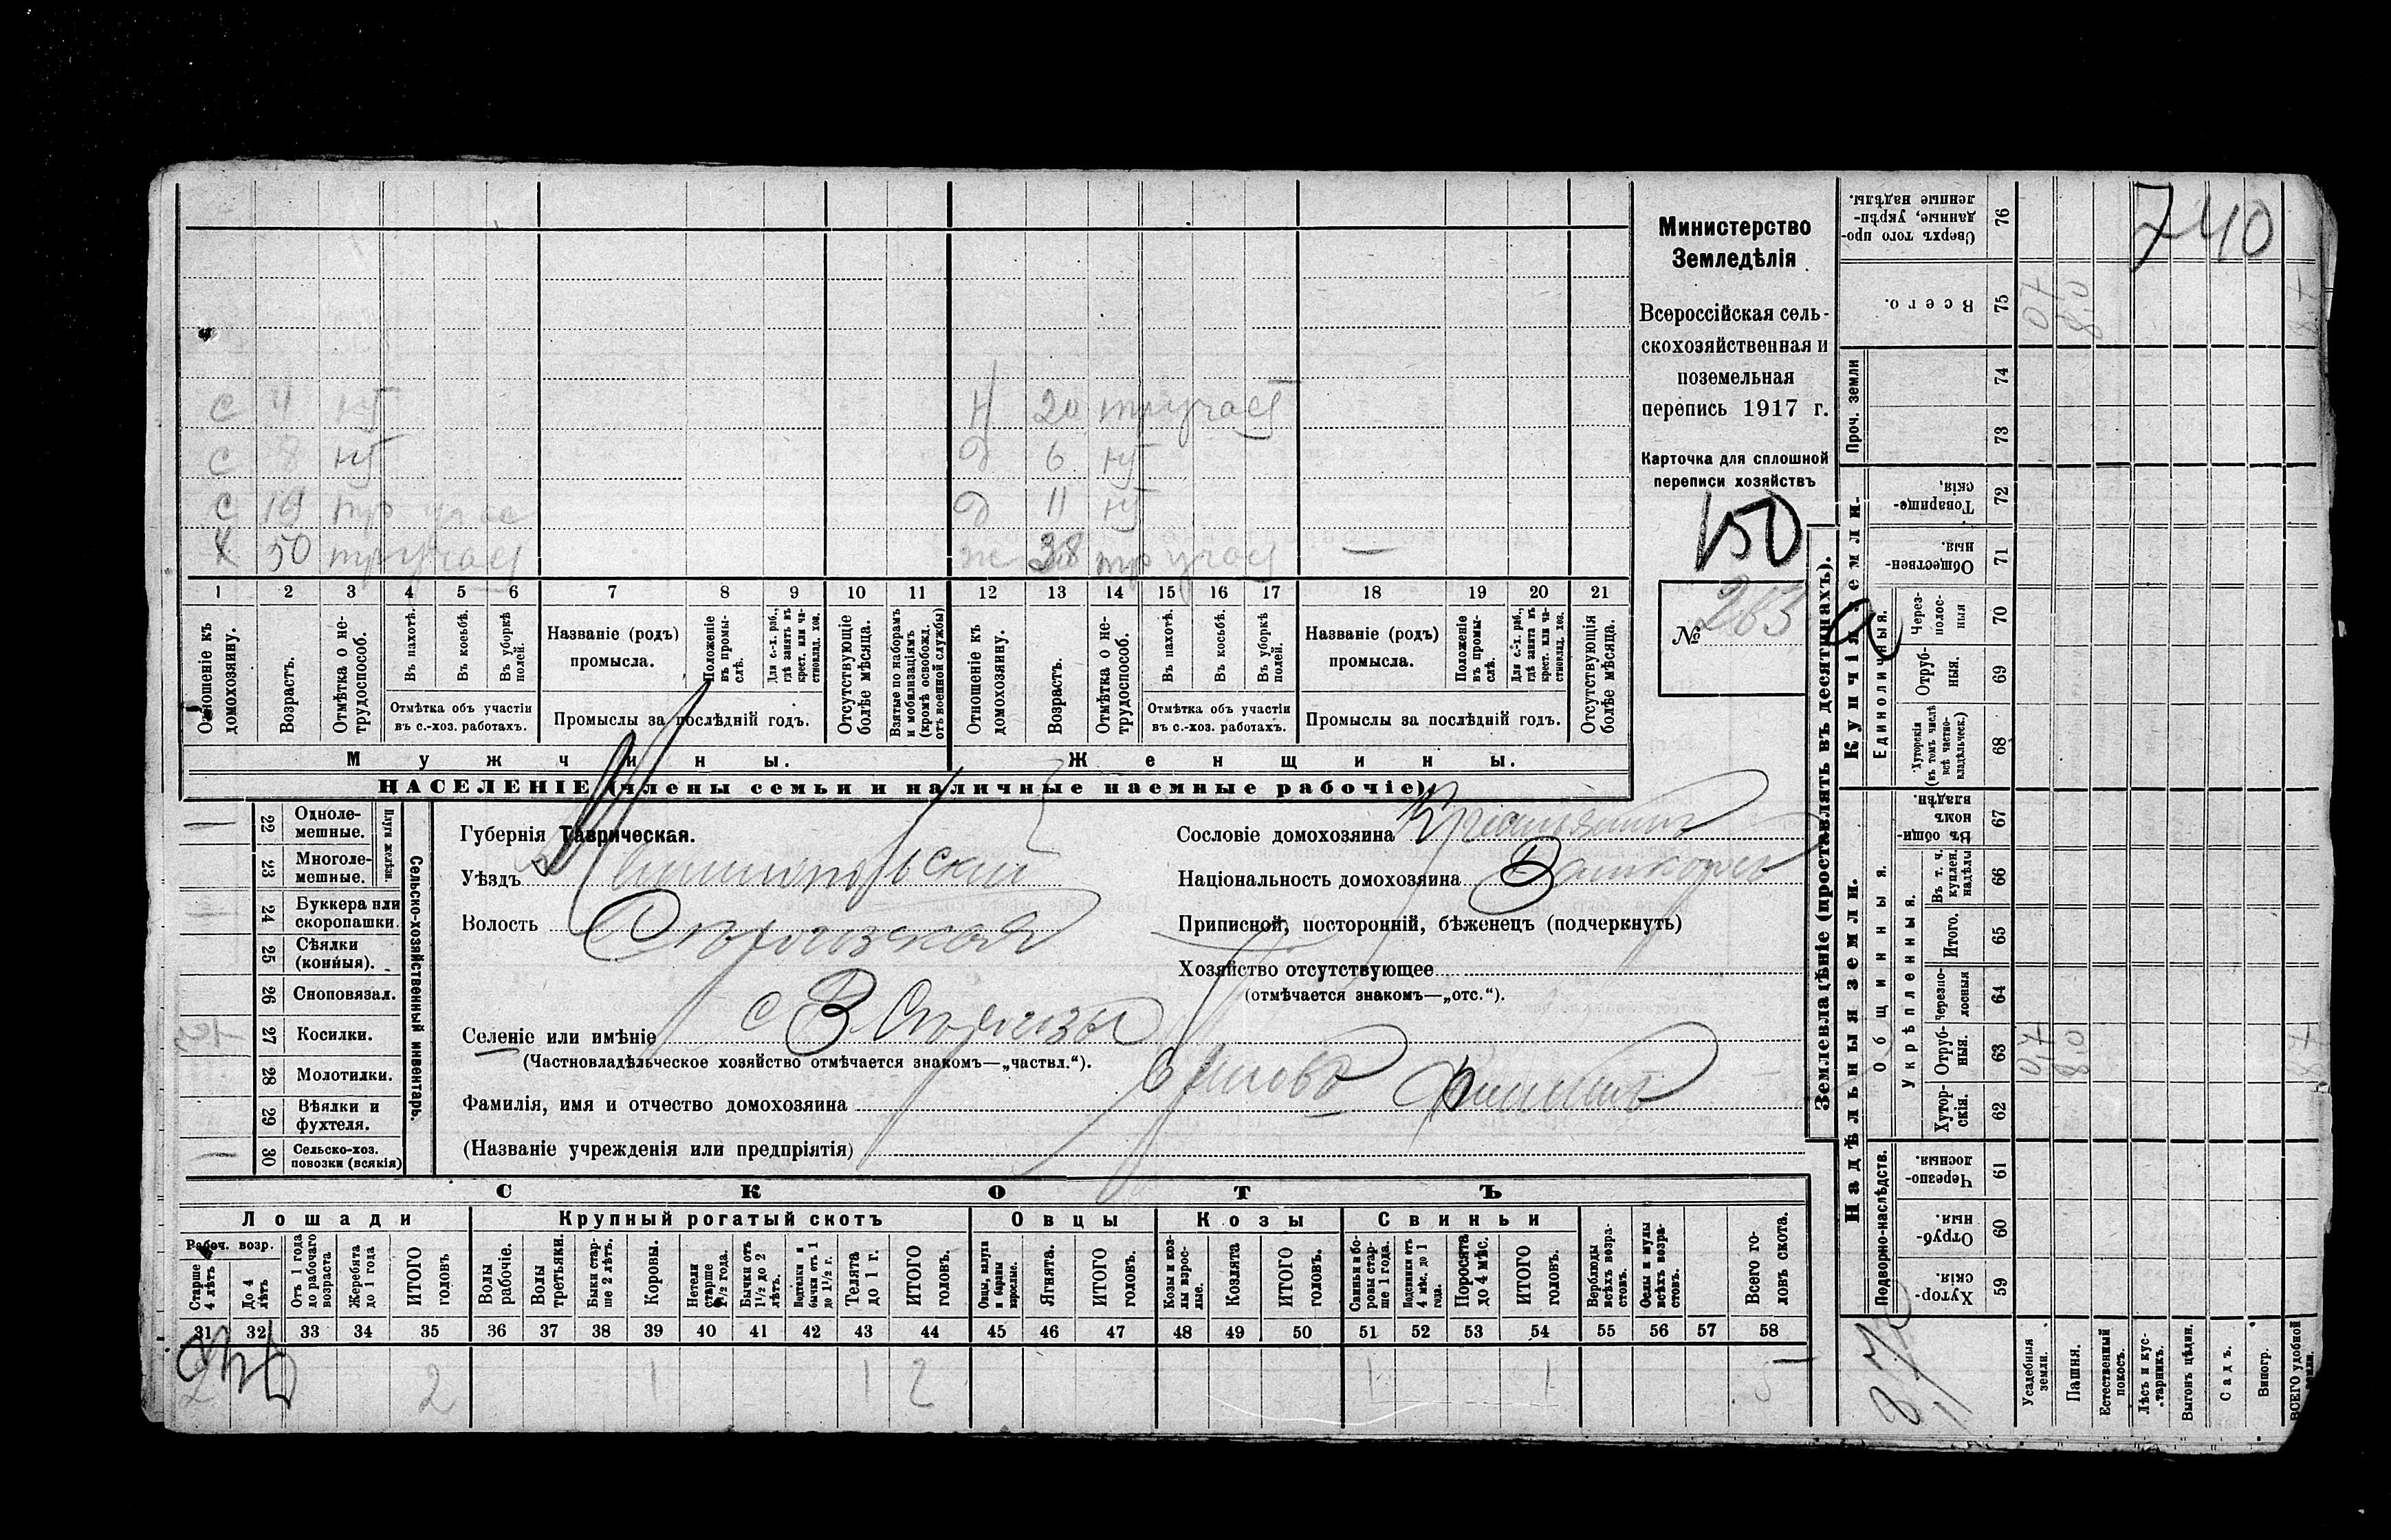 740
Министерство
Земледѣлія
Всероссійская сель-
скохозяйственная и
поземельная
перепись 1917 г.
Карточка для сплошной
переписи хозяйствъ
150
№ 263
с 11 нт
с 8 нт
с 19 тр учас
х 50 тр участ
н 20 тр участ
д 6 нт
д 11 нт
ж 38 тр участ —
1 2 3 4 5 6 7 8 9 10 11 12 13 14 15 16 17 18 19 20 21
Отношеніе къ домохозяину.
Возрастъ.
Отмѣтка о не-трудоспособ.
Въ пахотѣ.
Въ косьбѣ.
Въ уборкѣ полей.
Отмѣтка объ участіи
въ с.-хоз. работахъ.
Названіе (родъ)
промысла.
Положеніе въ промы-слѣ.
Для с.-х. раб., гдѣ занятъ въ крест. или ча-стновлад. хоз.
Промыслы за послѣдній годъ.
Отсутствующіе болѣе мѣсяца.
Взятые по наборамъ и мобилизаціямъ (кромѣ освобожд. отъ военной службы)
Отношеніе къ домохозяину.
Возрастъ.
Отмѣтка о не-трудоспособ.
Въ пахотѣ.
Въ косьбѣ.
Въ уборкѣ полей.
Отмѣтка объ участіи
въ с.-хоз. работахъ.
Названіе (родъ)
промысла.
Положеніе въ промы-слѣ.
Для с.-х. раб., гдѣ занята въ крест. или ча-стновлад. хоз.
Промыслы за послѣдній годъ.
Отсутствующія болѣе мѣсяца.
Мужчины.
Женщины.
НАСЕЛЕНІЕ (члены семьи и наличные наемные рабочіе).
Губернія Таврическая.
Уѣздъ
Волость
Селеніе или имѣніе
(Частновладѣльческое хозяйство отмѣчается знакомъ—„частвл.“).
Фамилія, имя и отчество домохозяина
(Названіе учрежденія или предпріятія)
Сословіе домохозяина Крестьянинъ
Національность домохозяина
Приписной, посторонній, бѣженецъ (подчеркнуть)
Хозяйство отсутствующее
(отмѣчается знакомъ—„отс.“).
Сельско-хозяйственный инвентарь.
Плуги желѣзн.
22 Одноле-мешные.
23 Многоле-мешные.
24 Буккера или скоропашки.
25 Сѣялки (конныя).
26 Сноповязал.
27 Косилки.
28 Молотилки.
29 Вѣялки и фухтеля.
30 Сельско-хоз. повозки (всякія)
СКОТЪ
Лошади
Крупный рогатый скотъ
Овцы
Козы
Свиньи
Рабоч. возр.
Старше 4 лѣтъ
До 4 лѣтъ
Отъ 1 года до рабочаго возраста
Жеребята до 1 года
ИТОГО головъ
Волы рабочіе.
Волы третьяки.
Быки стар-ше 2 лѣтъ.
Коровы.
Нетели старше 1½ года.
Бычки отъ 1½ до 2 лѣтъ.
Подтелки и бычки отъ 1 до 1½ г.
Телята до 1 г.
ИТОГО головъ.
Овцы, валухи и бараны взрослые.
Ягнята.
ИТОГО головъ.
Козы и коз-лы взрос-лые.
Козлята
ИТОГО головъ.
Свиньи и бо-ровы стар-ше 1 года.
Подсвинки отъ 4 мѣс. до 1 года.
Поросята до 4 мѣс.
ИТОГО головъ.
Верблюды всѣхъ возра-стовъ.
Ослы и мулы всѣхъ возра-стовъ.
Всего го-ловъ скота.
31 32 33 34 35 36 37 38 39 40 41 42 43 44 45 46 47 48 49 50 51 52 53 54 55 56 57 58
2 2 1 1 2 1 1 5
Землевладѣніе (проставлять въ десятинахъ).
Надѣльныя земли.
Купчія земли.
Проч. земли
Подворно-наслѣдств.
Общинныя.
Укрѣпленныя.
Единоличныя.
Хутор-скія. 59
Отруб-ныя. 60
Черезпо-лосныя. 61
Хутор-скія. 62
Отруб-ныя. 63
Черезпо-лосныя 64
Итого. 65
Въ т. ч. куплен. надѣлы 66
Въ общин-номъ владѣн. 67
Хуторскія (въ томъ числѣ всѣ частно-владѣльческ.) 68
Отруб-ныя. 69
Через-полос-ныя 70
Обществен-ныя. 71
Товарище-скія. 72
73
74
Всего. 75
Сверхъ того про-данные, укрѣп-ленные надѣлы. 76
Усадебныя земли.
Пашня.
Естественный покосъ.
Лѣсъ и кус-тарникъ.
Выгонъ цѣлин.
Садъ.
Виногр.
ВСЕГО удобной земли.
0,7 8,0 8,7
0,7 8,0 8,7